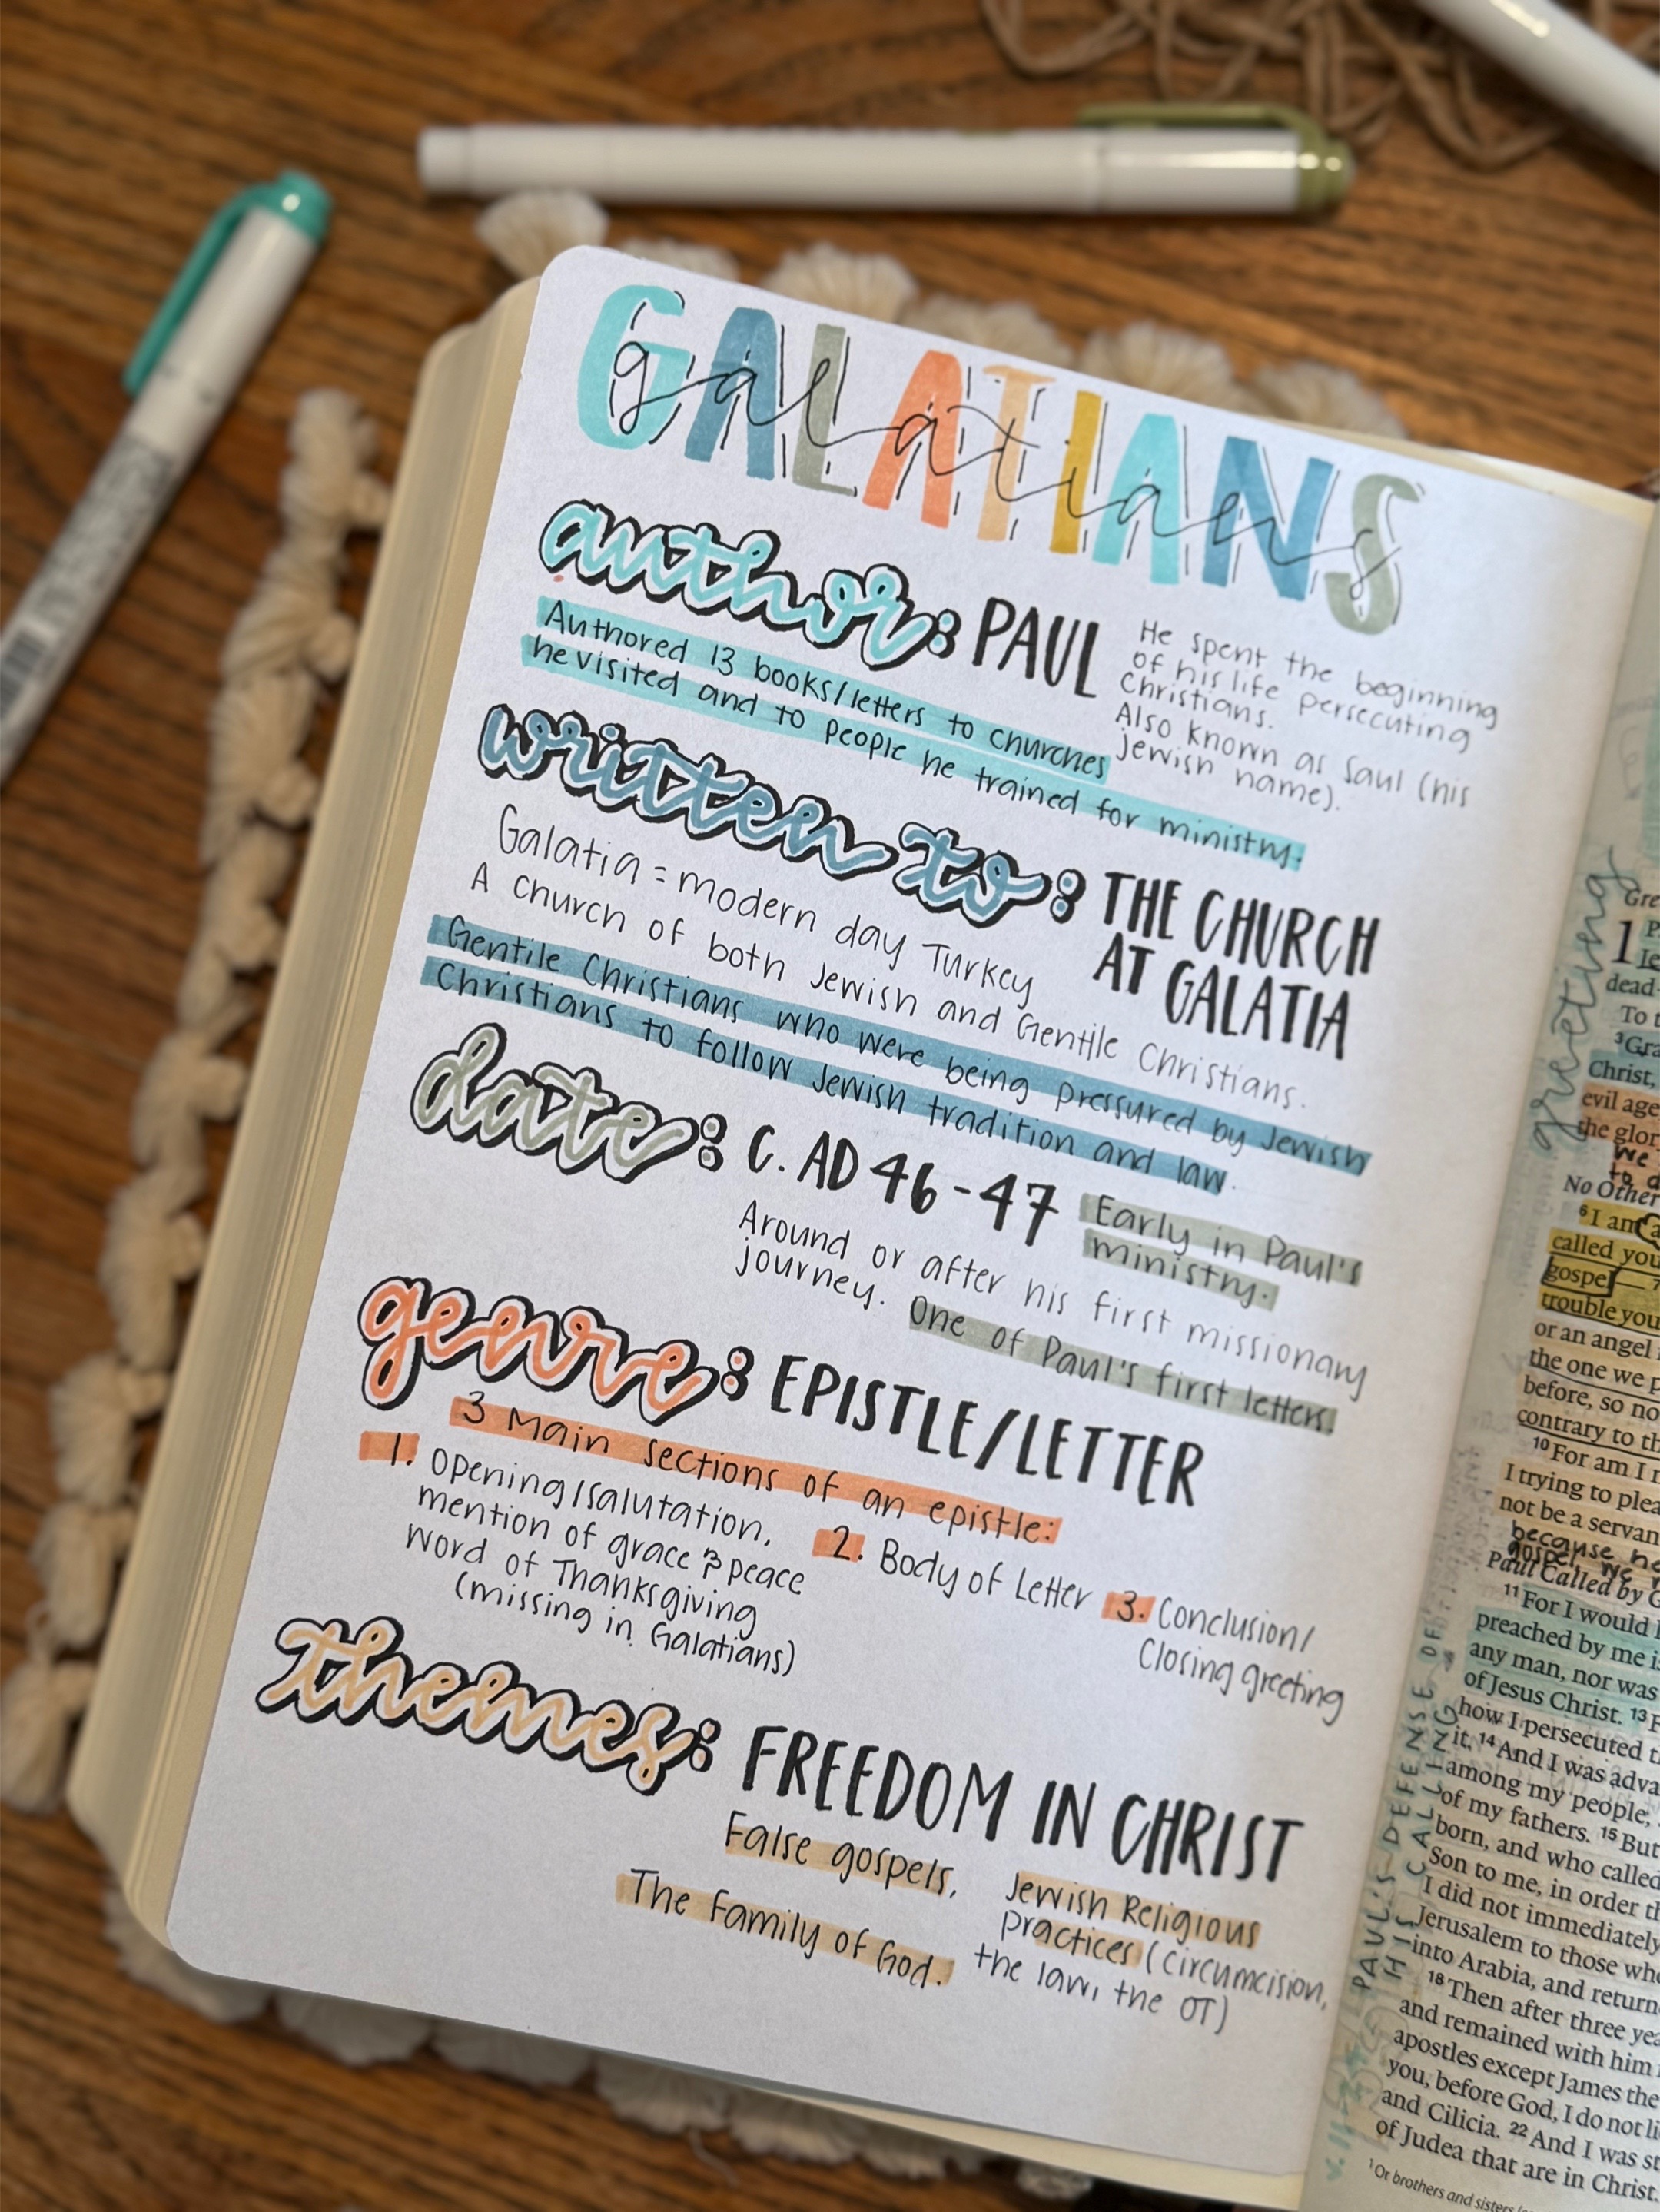 GALATIANS
galatians
author: PAUL
He spent the beginning
of his life persecuting
Christians.
Also known as Saul (his
Jewish name).
Authored 13 books/letters to churches
he visited and to people he trained for ministry.
written to: THE CHURCH
AT GALATIA
Galatia = modern day Turkey
A church of both Jewish and Gentile Christians.
Gentile Christians who were being pressured by Jewish
Christians to follow Jewish tradition and law.
date: C. AD 46-47
Early in Paul's
ministry.
Around or after his first missionary
journey. One of Paul's first letters.
genre: EPISTLE/LETTER
3 Main sections of an epistle:
1. Opening/salutation,
mention of grace & peace
word of Thanksgiving
(missing in Galatians)
2. Body of Letter
3. Conclusion/
Closing greeting
themes: FREEDOM IN CHRIST
False gospels,
The Family of God.
Jewish Religious
practices (circumcision,
the law, the OT)
greeting
PAUL'S DEFENSE OF
HIS CALLING
v. 11-24
Gre
1
dead
To t
3 Gra
Christ,
evil age
the glor
we
to d
No Other
6 I am a
called you
gospel — 7
trouble you
or an angel
the one we p
before, so no
contrary to th
10 For am I
I trying to plea
not be a servan
because he
gospel, we
Paul Called by G
11 For I would
preached by me is
any man, nor was
of Jesus Christ. 13 F
how I persecuted t
it. 14 And I was adva
among my people,
of my fathers. 15 But
born, and who called
Son to me, in order th
I did not immediately
Jerusalem to those who
into Arabia, and return
18 Then after three yea
and remained with him
apostles except James the
you, before God, I do not li
and Cilicia. 22 And I was st
of Judea that are in Christ.
1 Or brothers and sisters